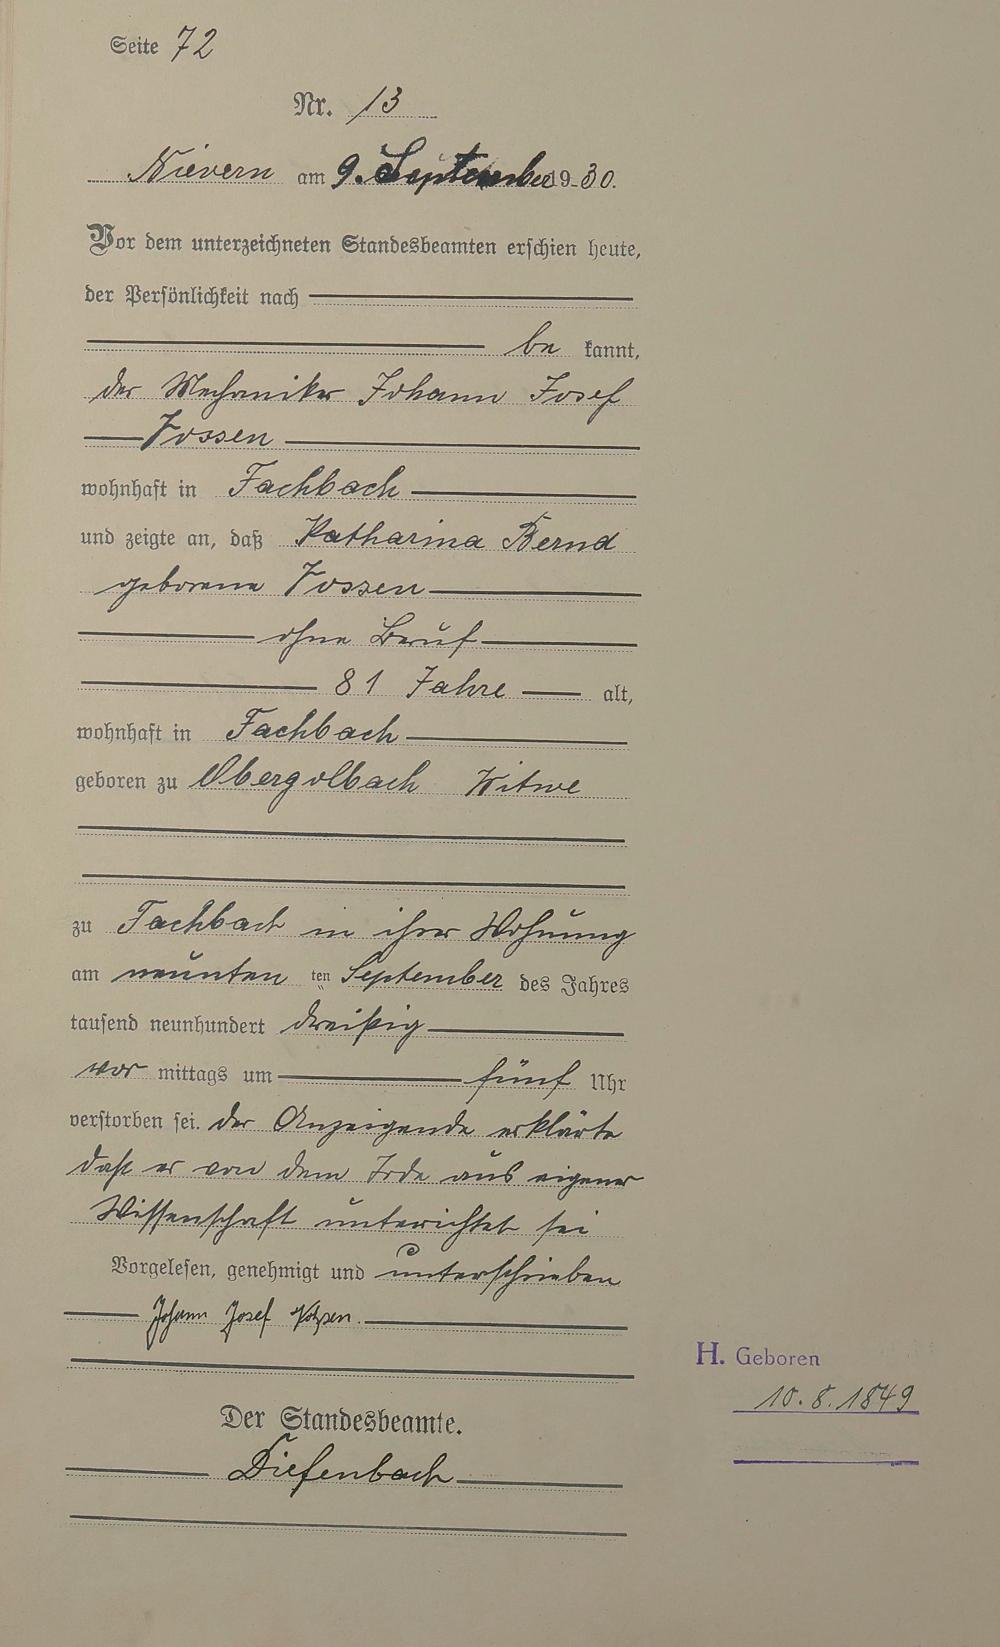 Seite 72
Nr. 13
Nievern am 9. September 19 30.
Vor dem unterzeichneten Standesbeamten erschien heute,
der Persönlichkeit nach
be kannt,
der Mechaniker Johann Josef
Vossen
wohnhaft in Fachbach
und zeigte an, daß Katharina Bernd
geborene Vossen
ohne Beruf
81 Jahre alt,
wohnhaft in Fachbach
geboren zu Obergolbach Witwe
zu Fachbach in ihrer Wohnung
am neunten ten September des Jahres
tausend neunhundert dreißig
vor mittags um fünf Uhr
verstorben sei. der Anzeigende erklärte
daß er von dem Tode aus eigener
Wissenschaft unterichtet sei
Vorgelesen, genehmigt und unterschrieben
Johann Josef
Der Standesbeamte.
Diefenbach
H. Geboren
10.8.1849